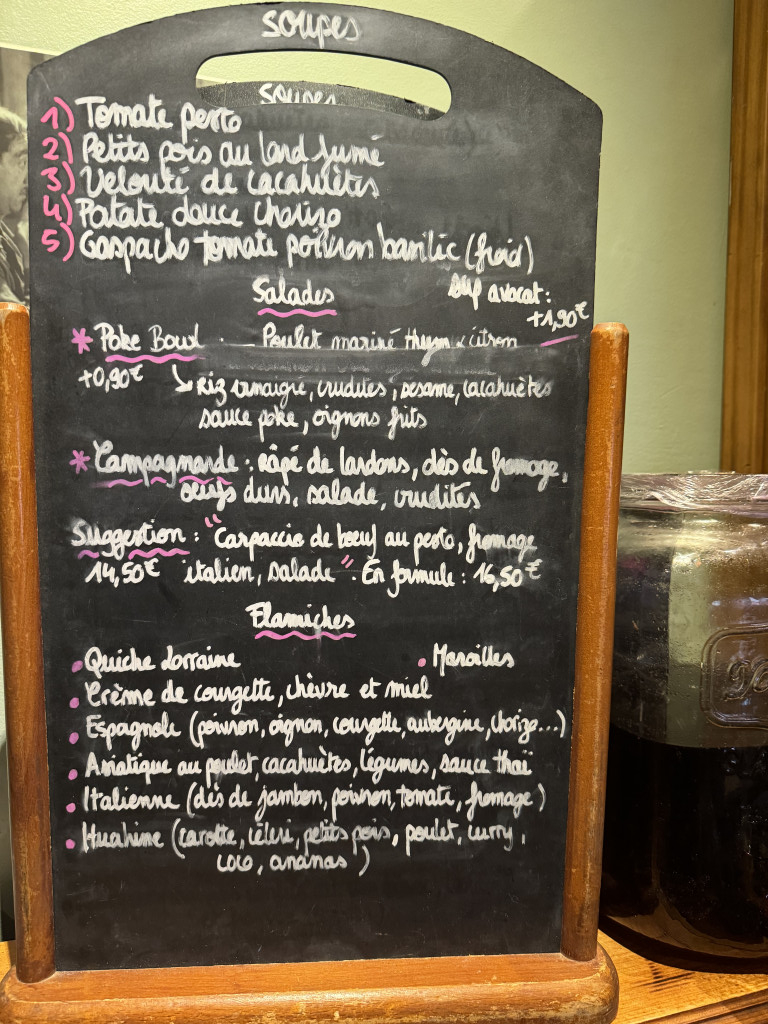 Soupes
Soupes
1) Tomate pesto
2) Petits pois au lard fumé
3) Velouté de cacahuètes
4) Patate douce chorizo
5) Gaspacho tomate poivron basilic (froid)
Salades
Sup avocat :
+1,90€
* Poke Bowl . Poulet mariné thym & citron
+0,90€ Riz vinaigré, crudités, sésame, cacahuètes
sauce poke, oignons frits
* Campagnarde : râpé de lardons, dès de fromage,
oeufs durs, salade, crudités
Suggestion : "Carpaccio de boeuf au pesto, fromage
14,50€ italien, salade". En formule : 16,50€
Flamiches
• Quiche Lorraine • Maroilles
• Crème de courgette, chèvre et miel
• Espagnole (poivron, oignon, courgette, aubergine, chorizo...)
• Asiatique au poulet, cacahuètes, légumes, sauce thaï
• Italienne (dès de jambon, poivron, tomate, fromage)
• Huahine (carotte, céleri, petits pois, poulet, curry,
coco, ananas)